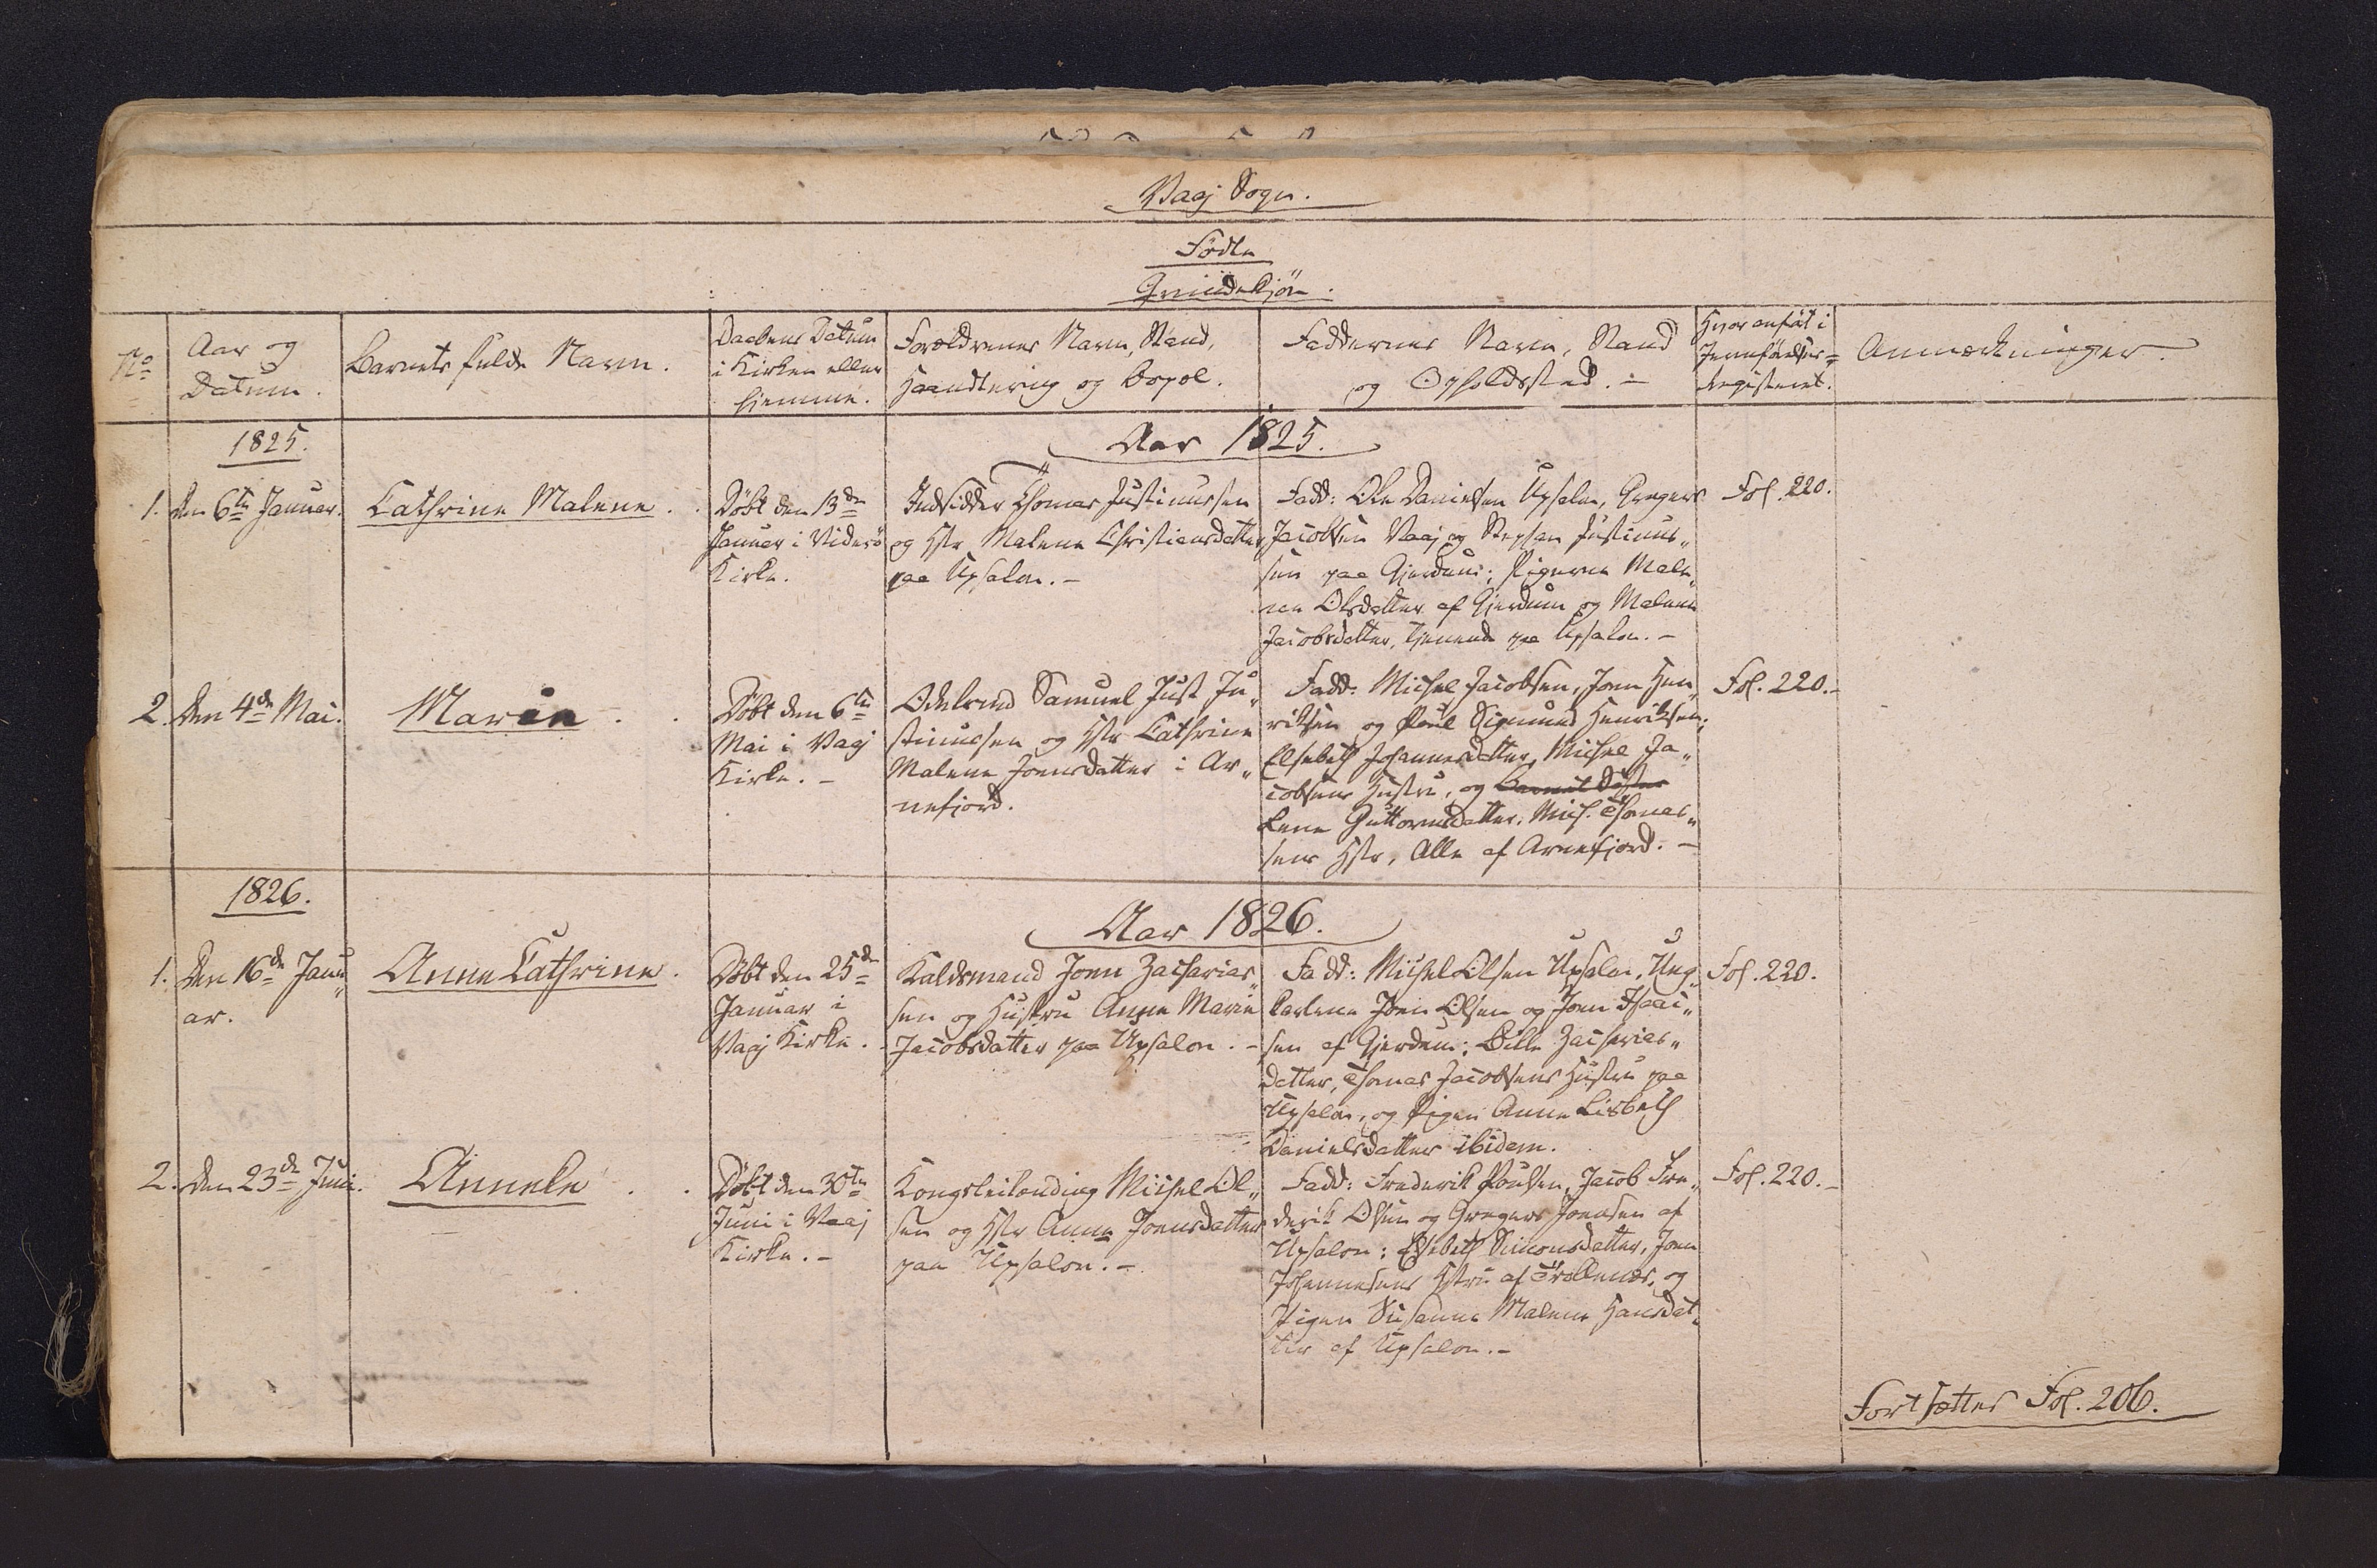 Vaaj Sogn.
Födte
Qvindekjön.
No
Aar og
Datum.
Barnets fulde Navn.
Daabens Datum
i Kirken eller
hjemme.
Forældrenes Navn, Stand,
Haandtering og Bopæl.
Faddernes Navn, Stand
og Opholdssted.
Hvor anfört i
Jevnførelses-
Registeret.
Anmærkninger.
1825.
Aar 1825.
1. den 6te Januar.
Cathrine Malene.
Döbt den 13de
Januar i Viderö
Kirke.
Indsidder Thomas Justinussen
og Hstr Malene Christiansdatter
paa Upsalon.
Fadd: Ole Danielsen Upsalon, Gregers
Jacobsen Vaaj og Stephan Justinus„
sen paa Gjerdum; Pigerne Male„
ne Olsdatter af Gjerdum og Malene
Jacobsdatter, tjenende paa Upsalon.
Fol. 220.
2. Den 4de Mai.
Maren
Döbt den 6te
Mai i Vaaj
Kirke.
Odelsmd Samuel Just Ju„
stinussen og Hstr Cathrine
Malene Joensdatter i Ar„
nefjord.
Fadd: Michel Jacobsen, Joen Hen„
riksen og Poul Sigmund Henriksen;
Elsebeth Johannesdatter, Michel Ja„
cobsens Hustru, og
Lene Guttormsdatter, Mich. Thomas„
sens Hstr, Alle af Arnefjord.
Fol. 220.
1826.
Aar 1826.
1. Den 16de Janu„
ar.
Anne Cathrine.
Döbt den 25de
Januar i
Vaaj Kirke.
Kaldsmand Joen Zacharias„
sen og Hustru Anne Marie
Jacobsdatter paa Upsalon.
Fadd: Michel Olsen Upsalon, Ung„
karlene Joen Olsen og Joen Isaac„
sen af Gjerdum; Bille Zacharias„
datter, Thomas Jacobsens Hustru paa
Upsalon, og Pigen Anne Lisbeth
Danielsdatter ibidem.
Fol. 220.
2. Den 23de Juni.
Anneke
Döbt den 30te
Juni i Vaaj
Kirke.
Kongsleilending Michel Ol„
sen og Hstr Anne Joensdatter
paa Upsalon.
Fadd: Frederik Poulsen, Jacob Fre„
derik Olsen og Gregers Joensen af
Upsalon; Elsebeth Simonsdatter, Joen
Johannesens Hstru af Trollenæs, og
Pigen Susanne Malene Hansdat„
ter af Upsalon.
Fol. 220.
Fortsættes Fol. 206.